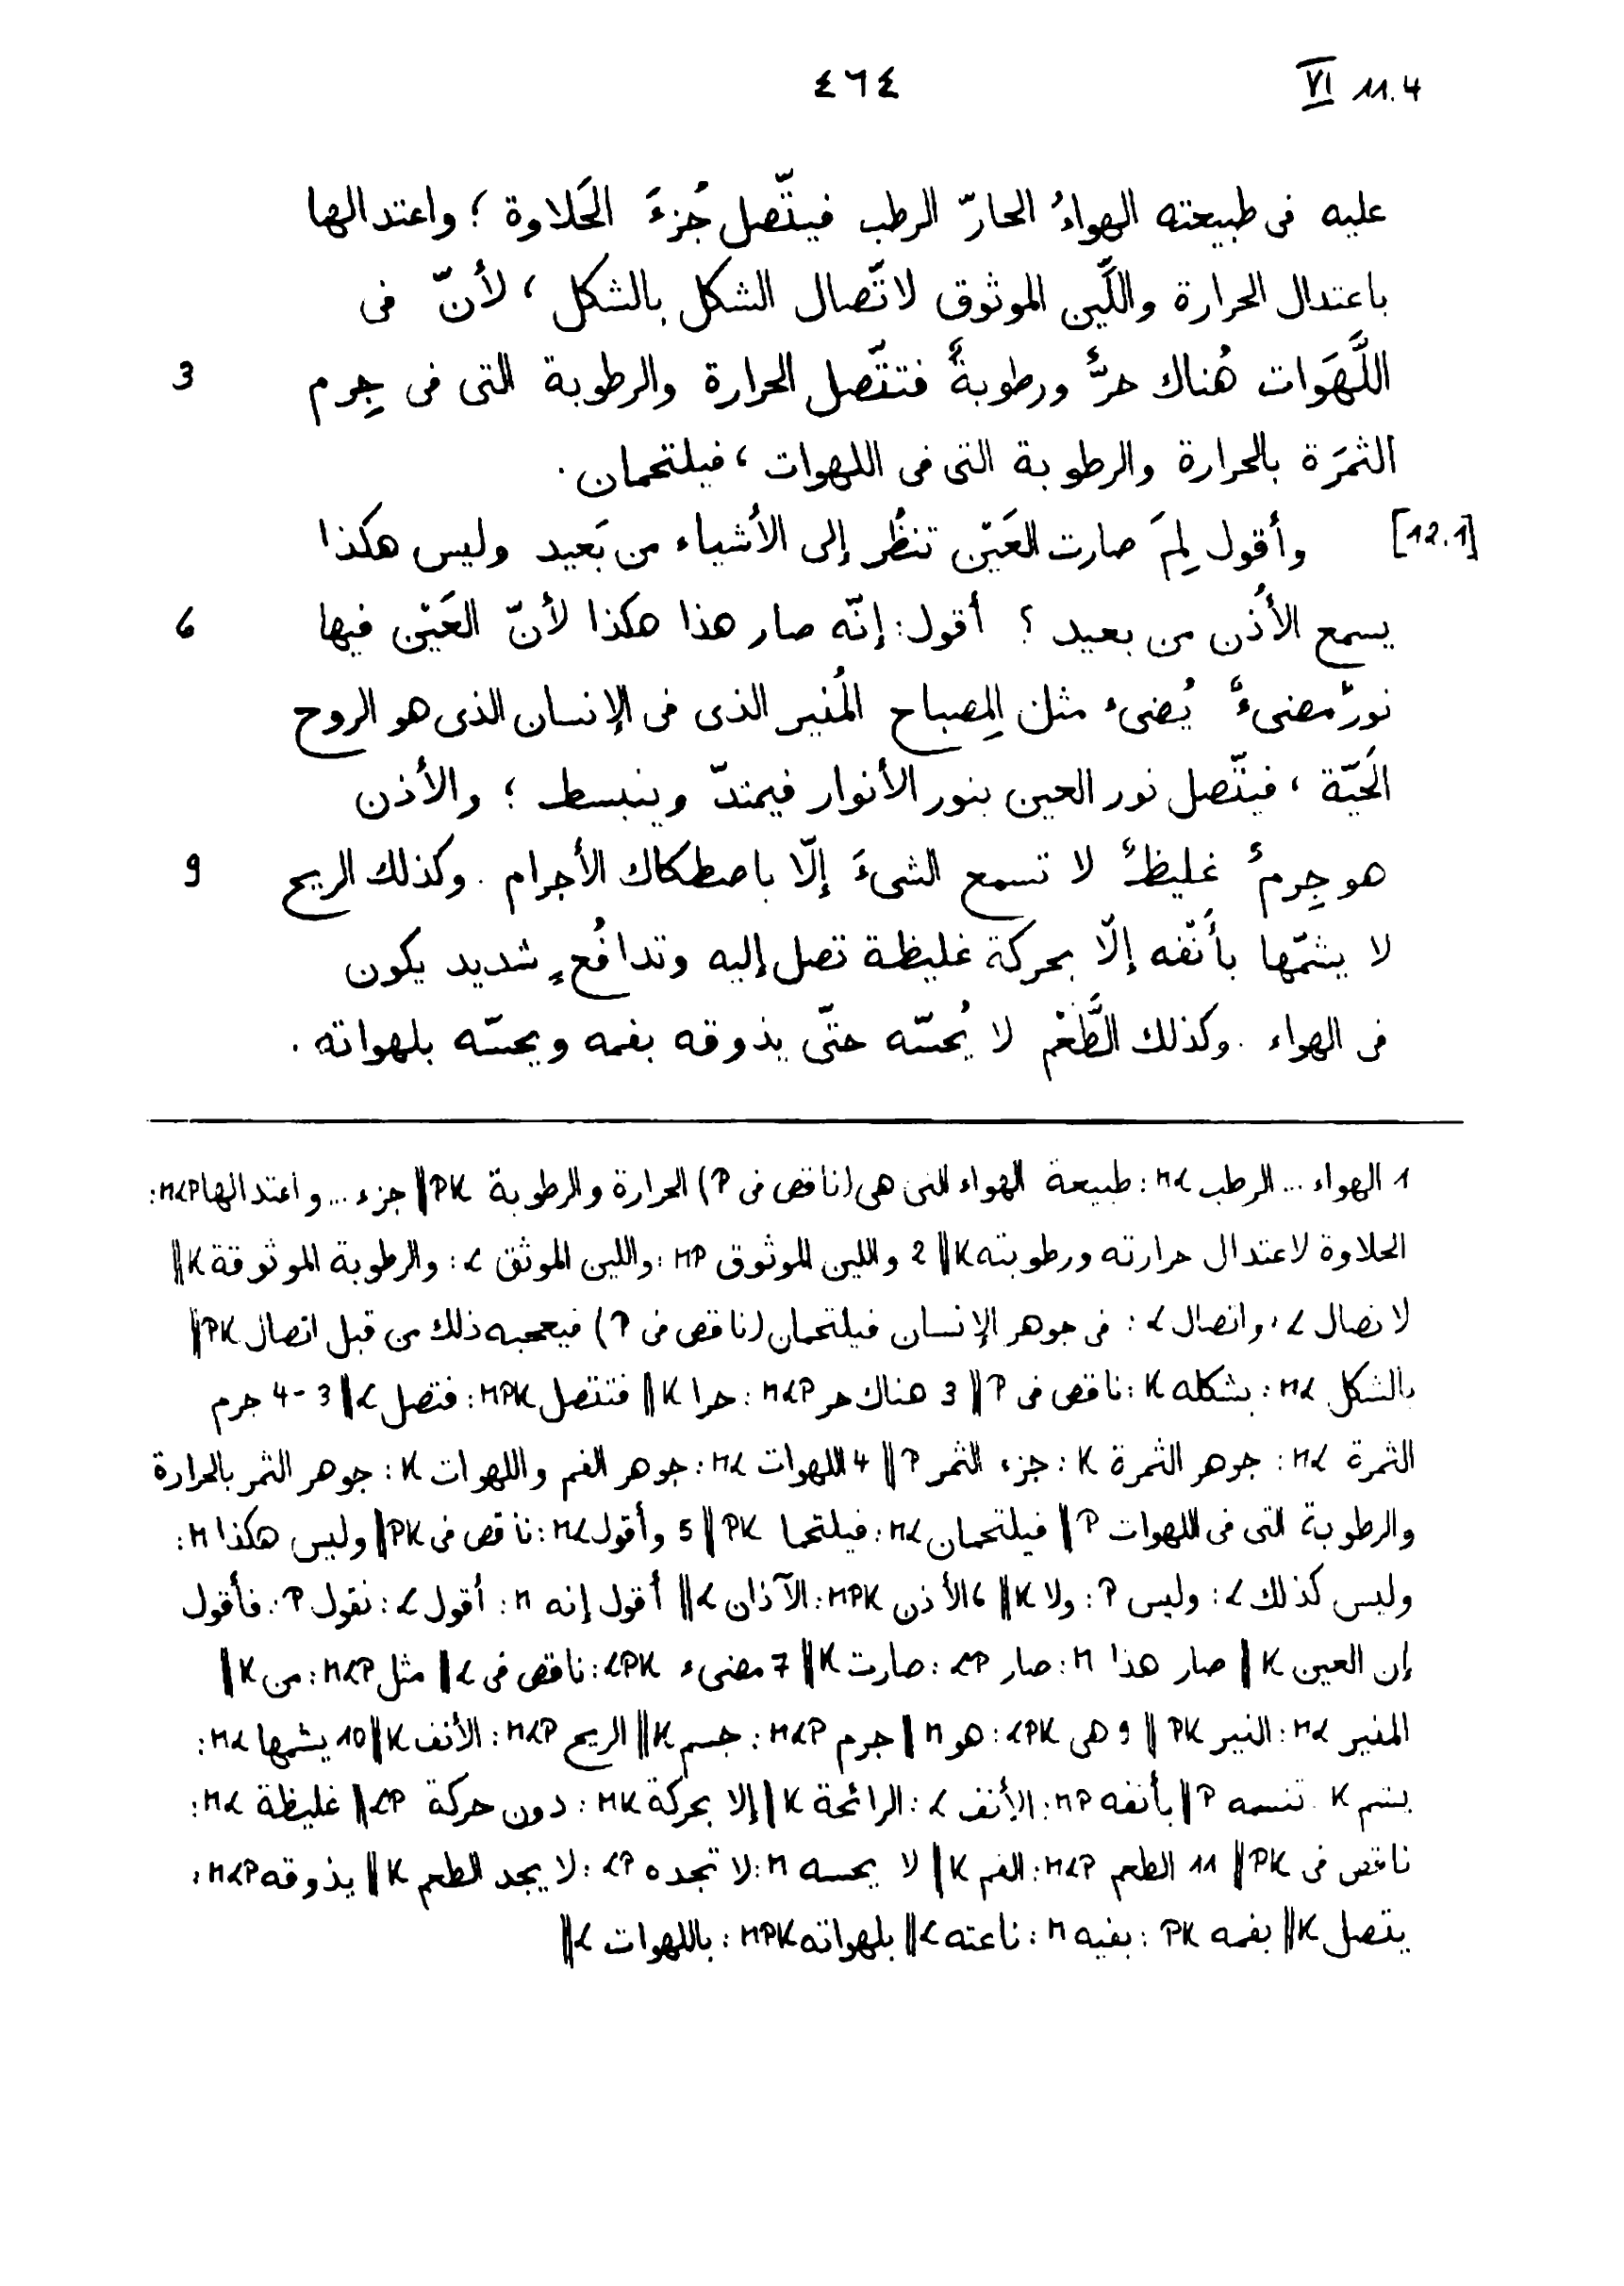 ٤٦٤
VI 11.4
عليه فى طبيعته الهواءُ الحارّ الرطب فيتّصل جُزءَ الحَلاوة ؛ واعتدالها
باعتدال الحرارة واللَّين الموثوق لاتّصال الشكل بالشكل ، لأنّ فى
اللَّهَوات هُناك حرٌّ ورطوبةٌ فتتّصل الحرارة والرطوبة التى فى جِرم 3
الثمَرَة بالحرارة والرطوبة التى فى اللهوات ، فيلتحمان .
[12.1] وأقول لِمَ صارت العَيْن تنظُر إلى الأشياء من بَعيد وليس هكذا
يسمع الأُذن من بعيد ؟ أقول : إنّه صار هذا هكذا لأنّ العَيْن فيها 6
نورٌ مضىءٌ يُضىء مثل المِصباح المُنير الذى فى الإنسان الذى هو الروح
الحَيّة ، فيتّصل نور العين بنور الأنوار فيمتدّ وينبسط ؛ والأُذن
هو جِرمٌ غليظٌ لا تسمع الشىءَ إلّا باصطكاك الأجرام . وكذلك الريح 9
لا يشمّها بأَنْفه إلّا بحركة غليظة تصل إليه وتدافُعٍ شديد يكون
فى الهواء . وكذلك الطَّعْم لا يُحسّه حتّى يذوقه بفمه ويحسّه بلهواته .
1 الهواء ... الرطب ML : طبيعة الهواء التى هى (ناقص فى P) الحرارة والرطوبة PK || جزء ... واعتدالها MLP :
الحلاوة لاعتدال حرارته ورطوبته K || 2 واللين الموثوق MP : واللين الموثق L : والرطوبة الموثوقة K ||
لاتصال L ، واتصال L : فى جوهر الإنسان فيلتحمان (ناقص فى P) فيعجبه ذلك من قبل اتصال PK ||
بالشكل ML : بشكله K : ناقص فى P || 3 هناك حر MLP : حرا K || فتتصل MPK : فتصل L || 3-4 جرم
الثمرة ML : جوهر الثمرة K : جزء الثمر P || 4 اللهوات ML : جوهر الفم واللهوات K : جوهر الثمر بالحرارة
والرطوبة التى فى اللهوات P || فيلتحمان ML : فيلتحما PK || 5 وأقول ML : ناقص فى PK || وليس هكذا M :
وليس كذلك L : وليس P : ولا K || 6 الأذن MPK : الآذان L || أقول إنه M : أقول L : نقول P : فأقول
إن العين K || صار هذا M : صار LP : صارت K || 7 مضىء LPK : ناقص فى L || مثل MLP : من K ||
المنير ML : النير PK || 9 هى LPK : هو M || جرم MLP : جسم K || الريح MLP : الأنف K || 10 يشمها ML :
يشم K تنسمه P || بأنفه MP : الأنف L : الرائحة K || إلا بحركة MK : دون حركة LP || غليظة ML :
ناقص فى PK || 11 الطعم MLP : الفم K || لا يحسه M : لا تجده LP : لا يجد الطعم K || يذوقه MLP :
يتصل K || بفمه PK : بفيه M : ناعته L || بلهواته MPK : باللهوات L ||